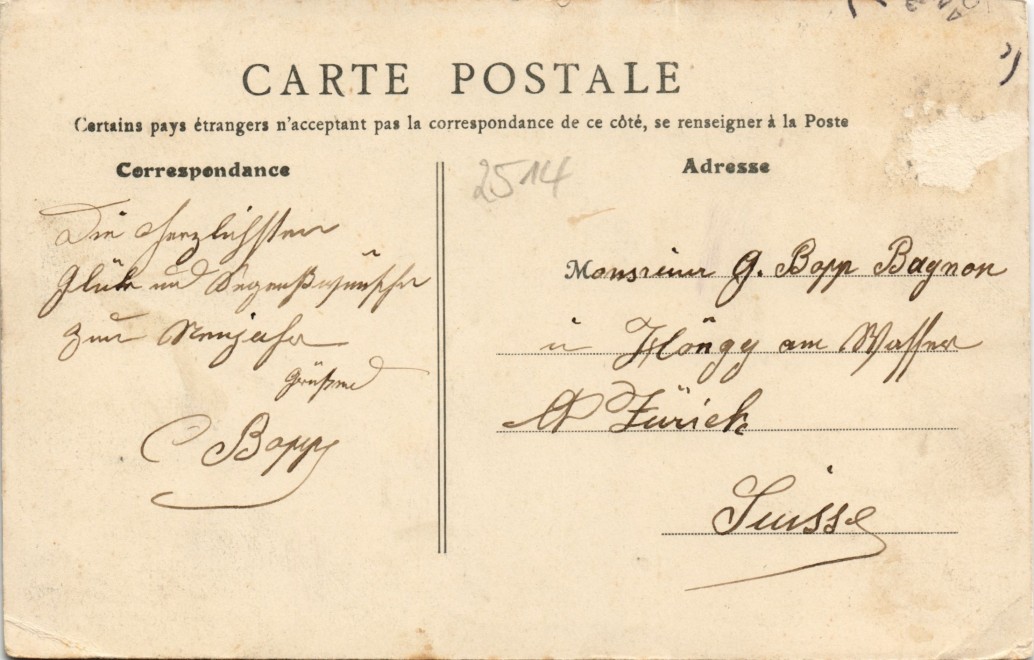 CARTE POSTALE
Certains pays étrangers n'acceptant pas la correspondance de ce côté, se renseigner à la Poste
Correspondance
Die herzlichsten
Glück und Segenswünsche
zum Neujahr
C Bopp
2514
Adresse
Monsieur G. Bopp Bagnon
in Höngg am Wasser
Zürich
Suisse